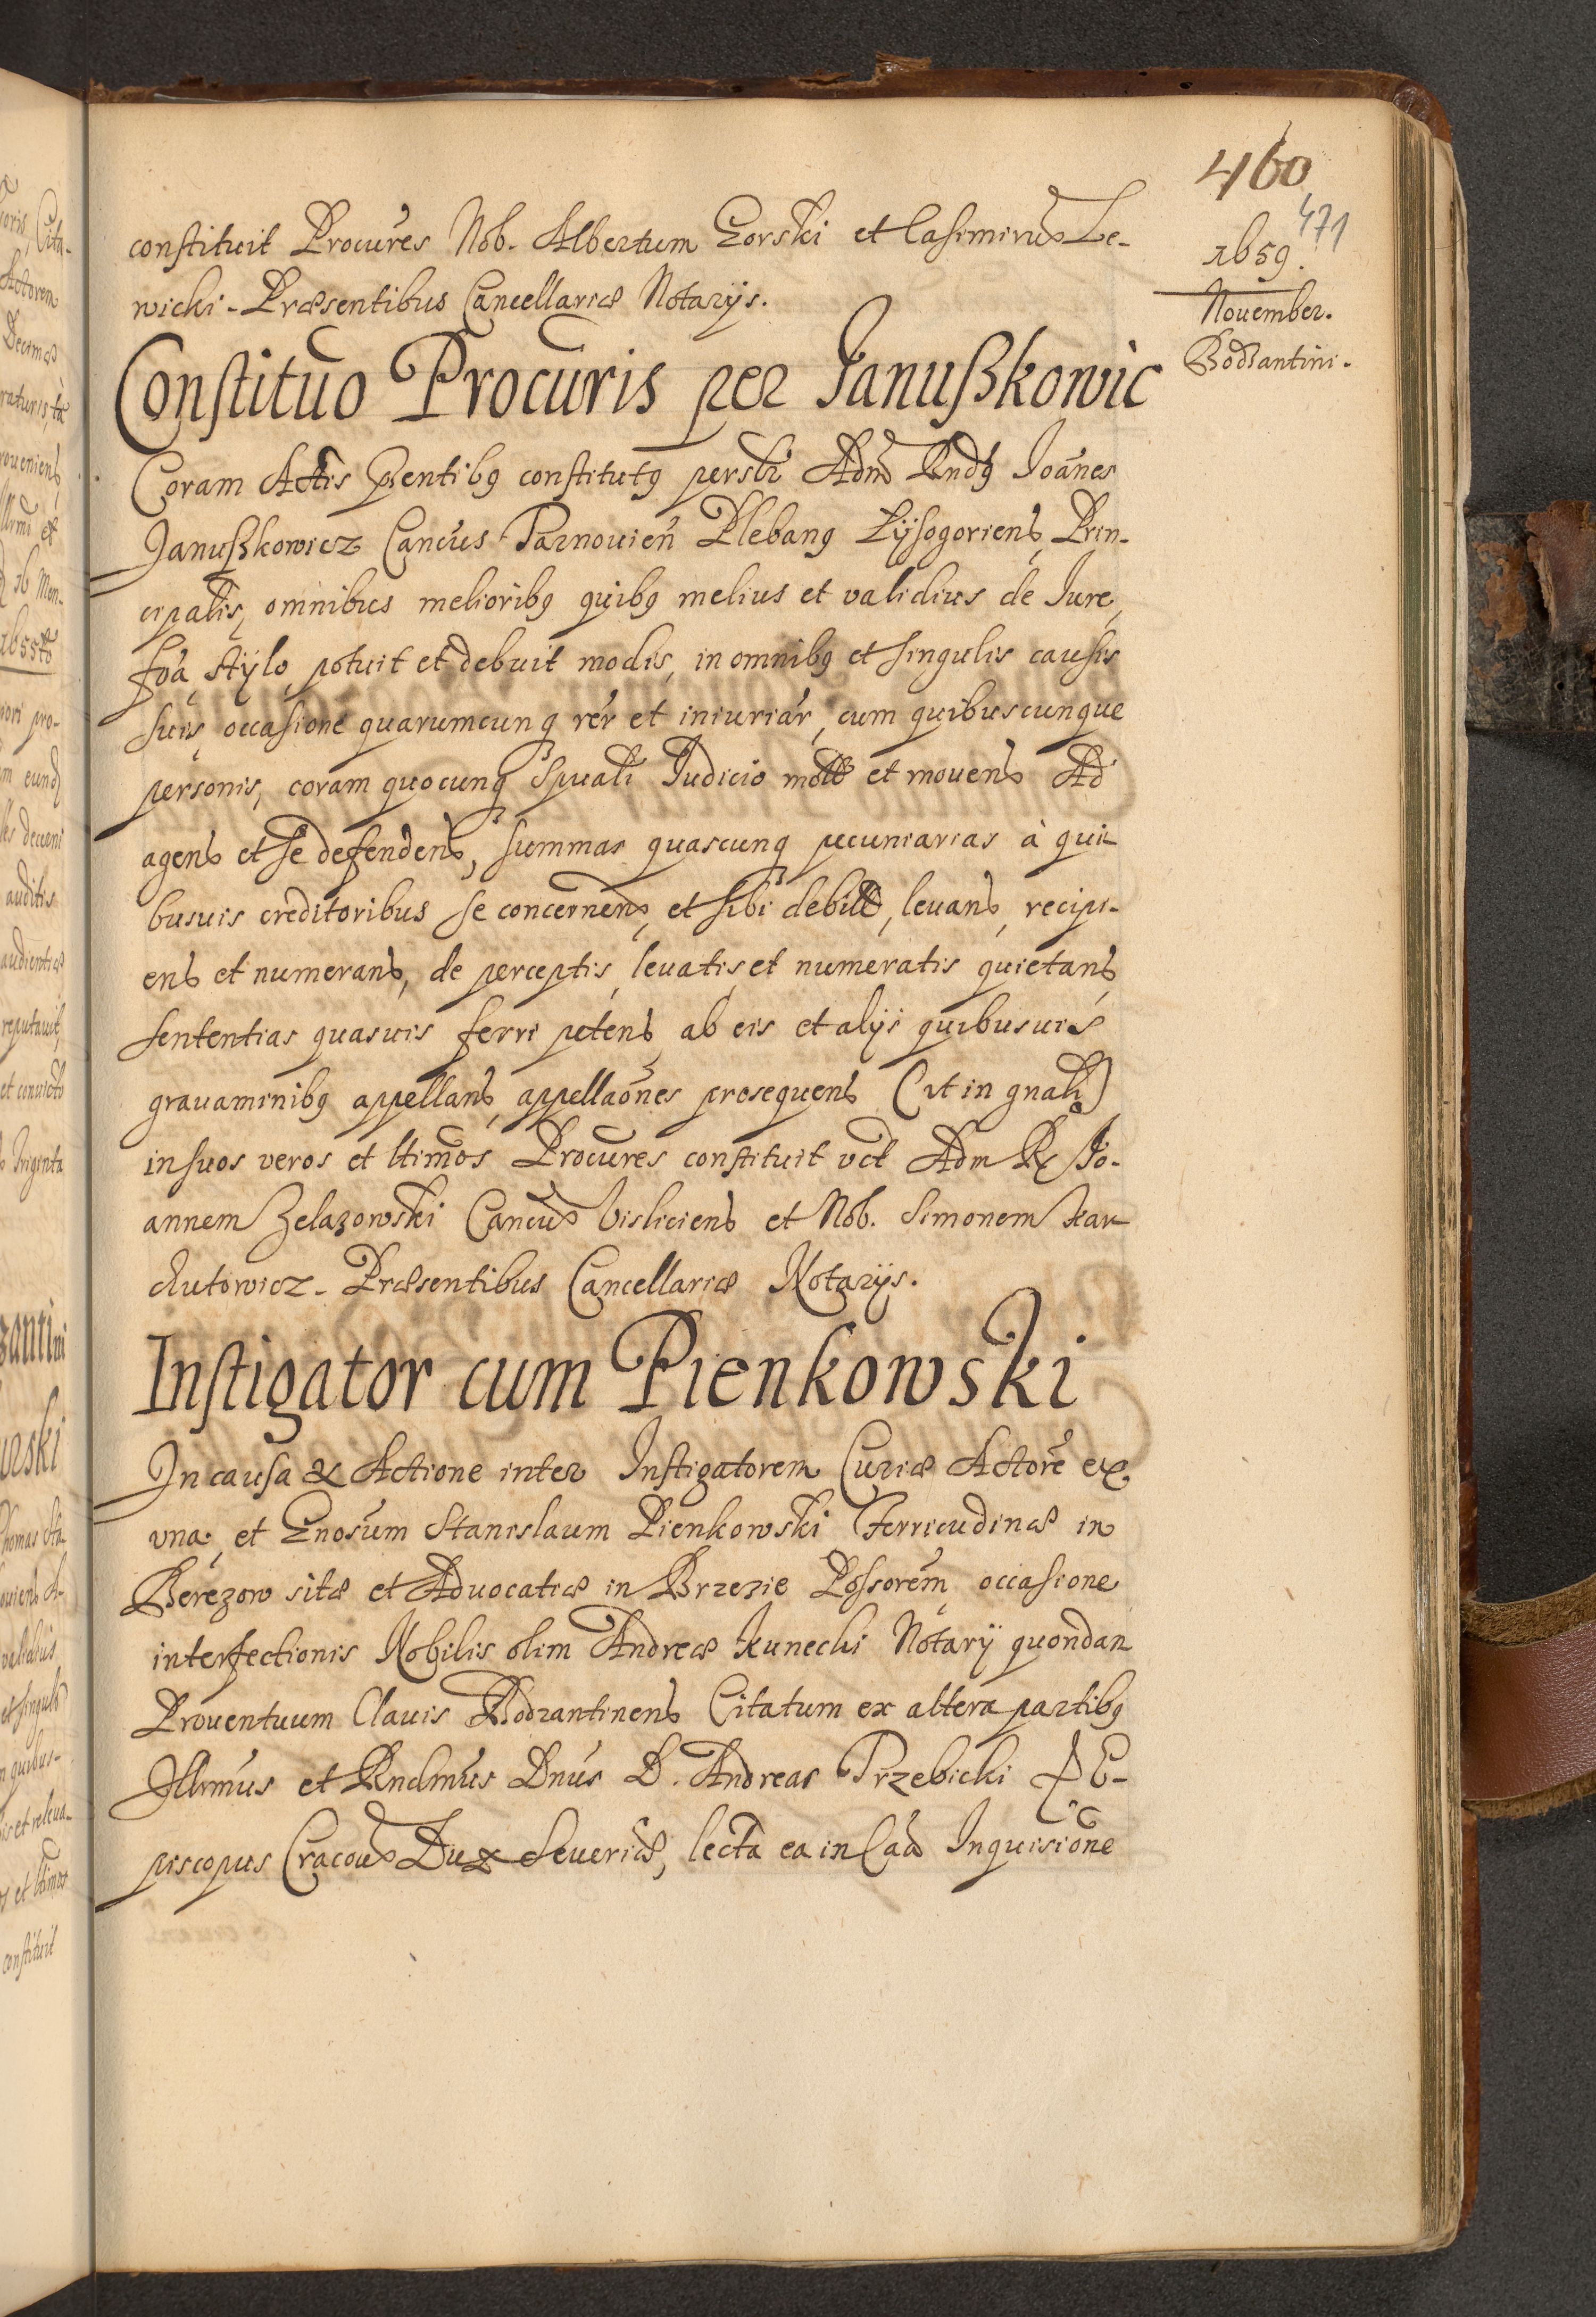 460
471
1659.
November.
Bodzantini.
constituit Procures Nob. Albertum Gorski et Casimirum Le-
wicki. Præsentibus Cancellariæ Notarijs.
Constituo Procuris per Janußkowic
Coram Actis pntibq constitutq persli Adm Rndq Joānes
Janußkowicz Cancus Tarnovien Plebanq Lÿsogoriens, Prin-
cipalis, omnibus melioribq quibq melius et validius de Jure,
foā, stÿlo, potuit et debuit modis, in omnibq et singulis causis
suis, occasione quarumcunq rer et iniuriār, cum quibuscunque
personis, coram quocunq Spuali Judicio mott et movens Ad
agens et se defendens, summas quascunq pecuniarias à qui-
busvis creditoribus se concernen, et sibi debitt, levans, recipi-
ens et numerans, de perceptis, levatis et numeratis quietans,
sententias quasvis ferri petens, ab eis et alijs quibusvis
gravaminibq appellans, appellaōnes prosequens (ut in gnali)
in suos veros et ltimos Procures constituit vct Adm R. Jo-
annem Zelazowski Cancum Visliciens et Nob. Simonem Kar
chutowicz. Præsentibus Cancellariæ Notarijs.
Instigator cum Pienkowski
In causa & Actione inter Instigatorem Curiæ Actorē ex
una, et Gnosum Stanislaum Pienkowski Ferricudinæ in
Berezow sitæ et Advocatiæ in Brzezie Possorem, occasione
interfectionis Nobilis olim Andreæ Kunecki Notarÿ quondam
Proventuum Clavis Bodzantinens Citatum ex altera partibq
Illrmus et Rndmus Dnus D. Andreas Trzebicki E-
piscopus Cracov Dux Severiæ, lecta ea in Caā Inquisiōne